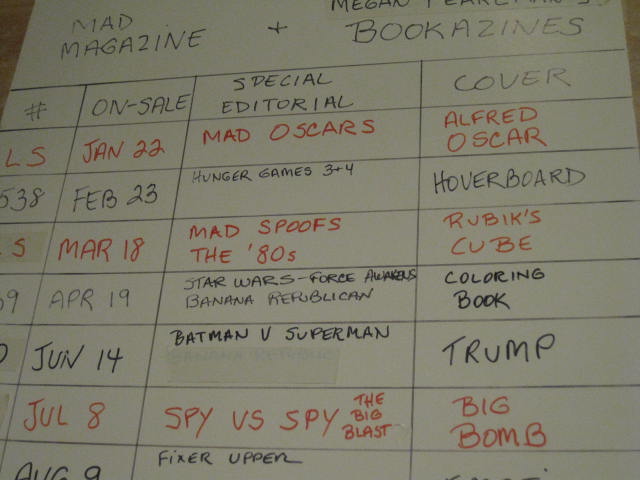 MAD MAGAZINE + MEGAN PEARLMAN'S BOOKAZINES
# ON-SALE SPECIAL EDITORIAL COVER
LS JAN 22 MAD OSCARS ALFRED OSCAR
538 FEB 23 HUNGER GAMES 3+4 HOVERBOARD
S MAR 18 MAD SPOOFS THE '80s RUBIK'S CUBE
9 APR 19 STAR WARS - FORCE AWAKENS BANANA REPUBLICAN COLORING BOOK
JUN 14 BATMAN V SUPERMAN TRUMP
JUL 8 SPY VS SPY THE BIG BLAST BIG BOMB
AUG 9 FIXER UPPER